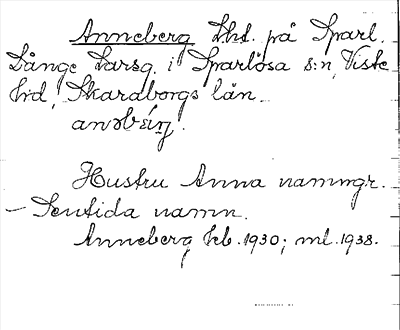 Anneberg Lht. på Sparl.
Långe Larsg. i Sparlösa s:n, Viste
hrd, Skaraborgs län.
Hustru Anna namngr.
– Sentida namn.
Anneberg kb. 1930; ml. 1938.